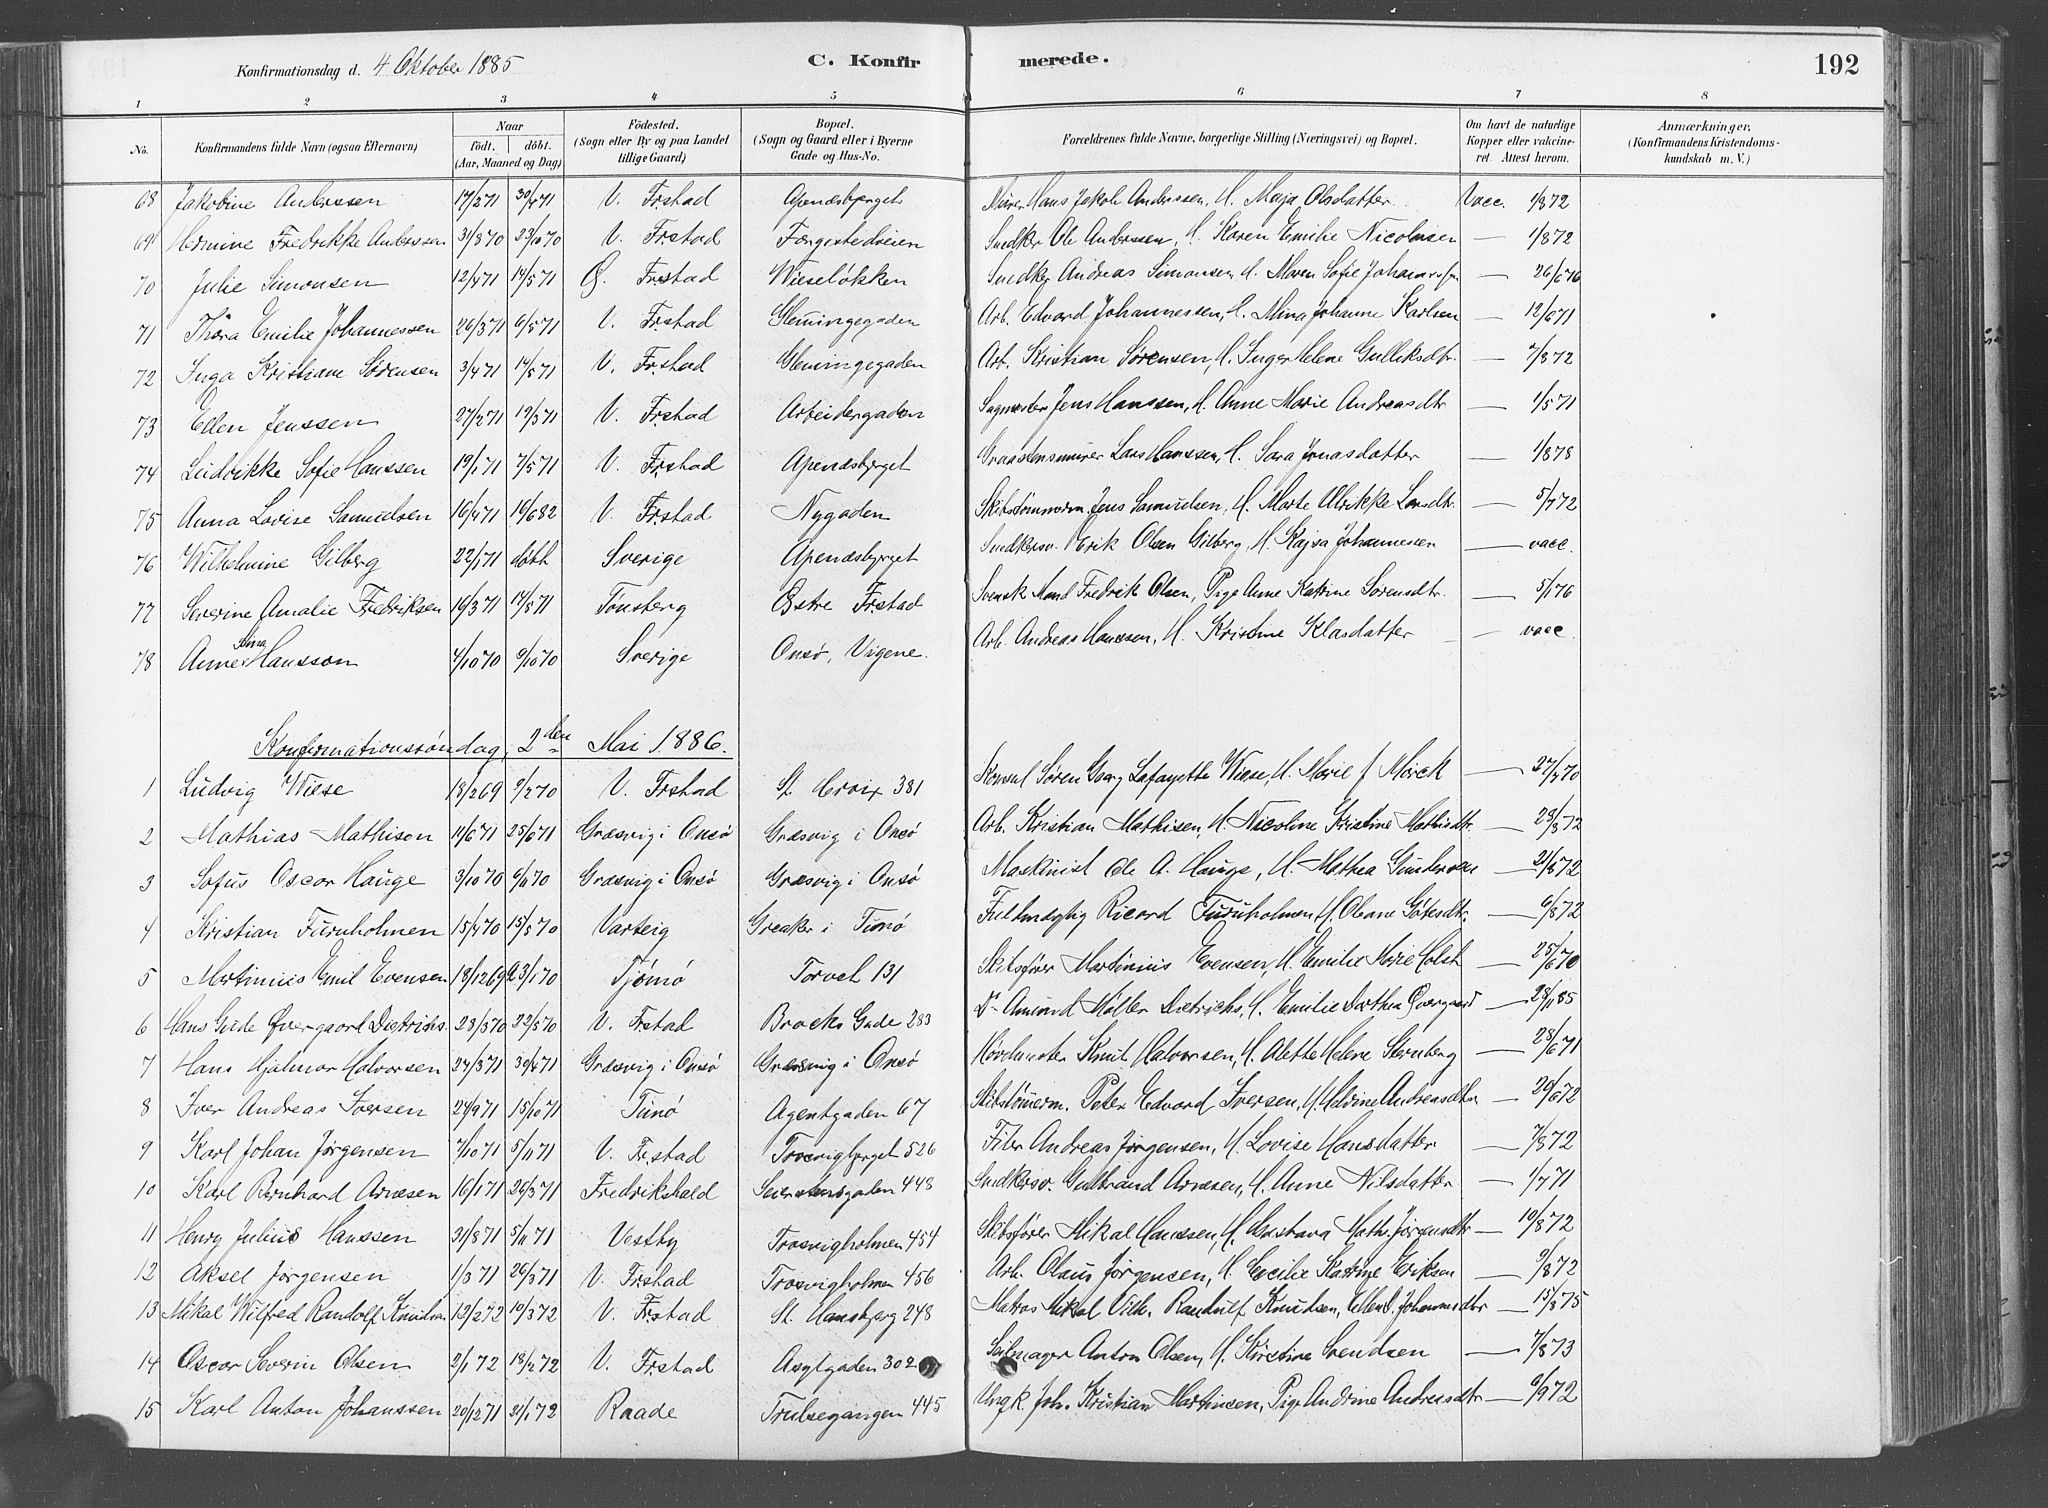 Konfirmationsdag d. 4 Oktober 1885 C. Konfirmerede. 192
1 2 3 4 5 6 7 8
No. Konfirmandens fulde Navn (ogsaa Efternavn) Naar födt. döbt. (Aar, Maaned og Dag) Födested. (Sogn eller By og paa Landet tillige Gaard) Bopæl. (Sogn og Gaard eller i Byerne Gade og Hus-No. Forældrenes fulde Navne, borgerlige Stilling (Næringsvei) og Bopæl. Om havt de naturlige Kopper eller vakcineret. Attest herom. Anmærkninger. (Konfirmandens Kristendomskundskab m. V.)
68 Jakobine Anderssen 17/2 71 30/4 71 V. Frstad Apenæsbjerget Murer Hans Jakob Anderssen, H. Maja Olsdatter Vacc. 1/8 72
69 Hermine Fredrikke Anderssen 31/8 70 23/10 70 V. Frstad Færgestedveien Snedker Ole Anderssen, H. Karen Emilie Nicolaisen — 1/8 72
70 Julie Simonsen 12/4 71 14/5 71 Ø. Frstad Wieseløkken Snedker Andreas Simonsen, H. Maren Sofie — 26/6 76
71 Thora Emilie Johannessen 26/3 71 6/5 71 V. Frstad Glemmingegaden Arb. Edvard Johannessen, H. Mina Johanne Karlsen — 12/6 71
72 Inga Kristiane Sørensen 3/4 71 14/5 71 V. Frstad Glemmingegaden Arb. Kristian Sørensen, H. Inger Helene Gulliksdtr. — 7/8 72
73 Ellen Jenssen 27/2 71 19/3 71 V. Frstad Arbeidergaden Sagmester Jens Hanssen, H. Anne Marie Andreasdtr — 1/5 71
74 Ludvikke Sofie Hanssen 19/1 71 7/5 71 V. Frstad Apenæsbjerget Graastensmurer Lars Hanssen, H. Sara Jonasdatter — 1/8 78
75 Anna Lovise Samuelsen 16/4 71 16/6 82 V. Frstad Nygaden Skibstømmerm. Jens Samuelsen, H. Marte Ulrikke Larsdtr. — 5/7 72
76 Wilhelmine Gilberg 22/1 71 døbt Sverige Apenæsbjerget Snedkersv. Erik Olsen Gilberg, H. Kajsa Johannesen — vacc.
77 Severine Amalie Fredriksen 16/3 71 14/5 71 Tønsberg Østre Frstad Svensk Mand Fredrik Olsen, Pige Anne Katrine Sørensdtr. — 5/1 76
78 Anne Stina Hansson 4/10 70 9/10 70 Sverige Onsø, Vigene. Arb. Andreas Hanssen, H. Kristine Klasdatter — vacc.
Konfirmationssøndag, 2den Mai 1886.
1 Ludvig Wiese 18/2 69 9/2 70 V. Frstad St. Croix 381 Konsul Søren Georg Lafayette Wiese, H. Marie f. Mørck — 27/7 70
2 Mathias Mathisen 11/6 71 25/6 71 Græsvig i Onsø Græsvig i Onsø Arb. Kristian Mathisen, H. Nicoline Kristine Mathisdtr. — 28/8 72
3 Sofus Oscar Hauge 3/10 70 6/11 70 Græsvig i Onsø Græsvig i Onsø Maskinist Ole A. Hauge, H. Mathea Gundersen — 21/8 72
4 Kristian Furuholmen 15/4 70 15/5 70 Varteig Greaker i Tunø Fuldmægtig Ricard Furuholmen, H. Oleane — 6/8 72
5 Martinius Emil Evensen 18/12 69 23/1 70 Tjømø Torvet 131 Skibsfører Martinius Evensen, H. Emilie Marie Holst — 25/6 70
6 Hans Gude Øvergaard Dietrichs. 28/3 70 22/5 70 V. Frstad Brochs Gade 283 Dr. Amund Møller Dietrichs, H. Emilie Dorthea Øvergaard — 28/11 85
7 Hans Hjalmar Halvorsen 24/3 71 30/4 71 Græsvig i Onsø Græsvig i Onsø Høvelmester Knut Halvorsen, H. Alette Helene Sternberg — 28/6 71
8 Iver Andreas Iversen 24/9 71 15/10 71 Tunø Agentgaden 67 Skibstømerm. Peter Edvard Iversen, H. Helvine Andreasdtr — 20/6 72
9 Karl Johan Jørgensen 7/10 71 5/11 71 V. Frstad Trosvigberget 526 Andreas Jørgensen, H. Lovise Hansdatter — 7/8 72
10 Karl Bernhard Arnesen 16/1 71 26/3 71 Fredrikshald Seierstensgaden 448 Snedkersv. Gulbrand Arnesen, H. Anne Nilsdatter — 1/7 71
11 Henry Julius Hanssen 31/8 71 5/11 71 Vestby Trosvigholmen 454 Skibsfører Mikal Hanssen, H. Gustava Math. Jørgensdtr — 10/8 72
12 Aksel Jørgensen 1/3 71 26/3 71 V. Frstad Trosvigholmen 456 Arb. Olaus Jørgensen, H. Cecilie Katrine Eriksen — 9/8 72
13 Mikal Wilfred Randolf Knudsen 12/2 72 10/3 72 V. Frstad St. Hansbjerg 248 Matros Mikal Vilh. Randulf Knudsen, Johannesdtr — 15/8 75
14 Oscar Severin Olsen 2/1 72 18/2 72 V. Frstad Asylgaden 302 Seilmager Anton Olsen, H. Kristine Svendsen — 7/8 73
15 Karl Anton Johanssen 20/12 71 21/1 72 Raade Trulsegangen 445 Ungk. Joh. Kristian Martinsen, Pige Andrine Andreasdtr. — 6/9 72